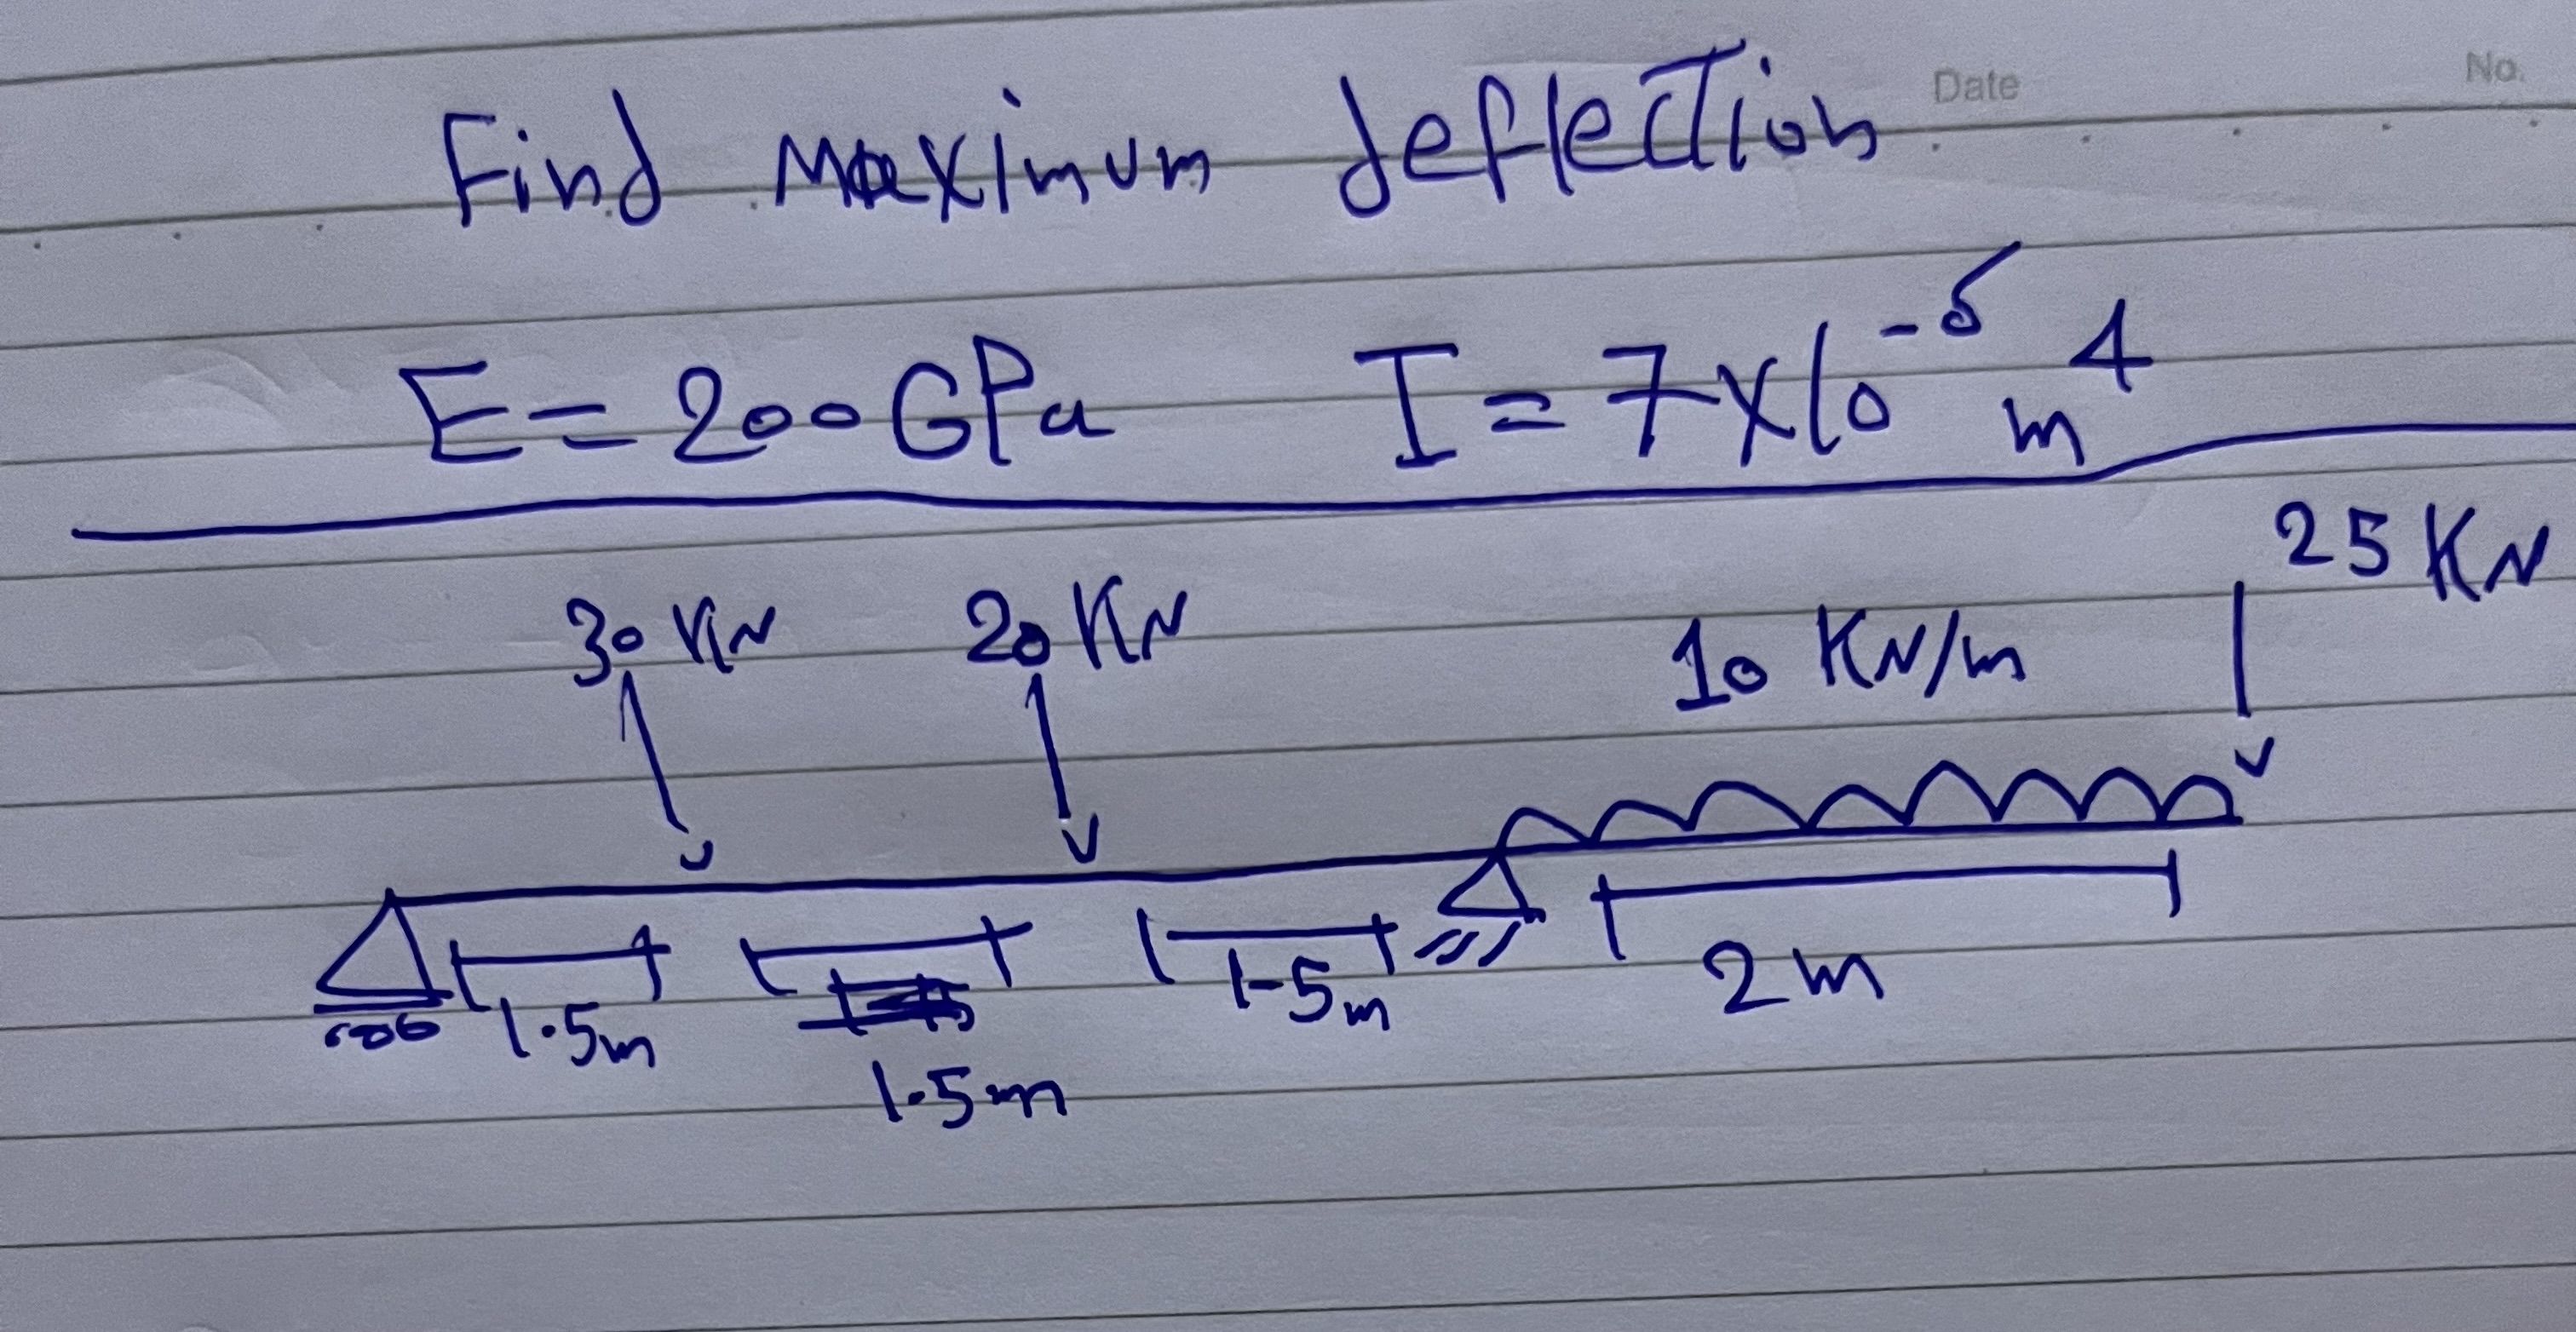 Date
No.
Find maximum deflection
E = 200 GPa I = 7 x 10⁻⁵ m⁴
25 KN
30 KN 20 KN 10 KN/m
1.5m 1.5m 1.5m 2m